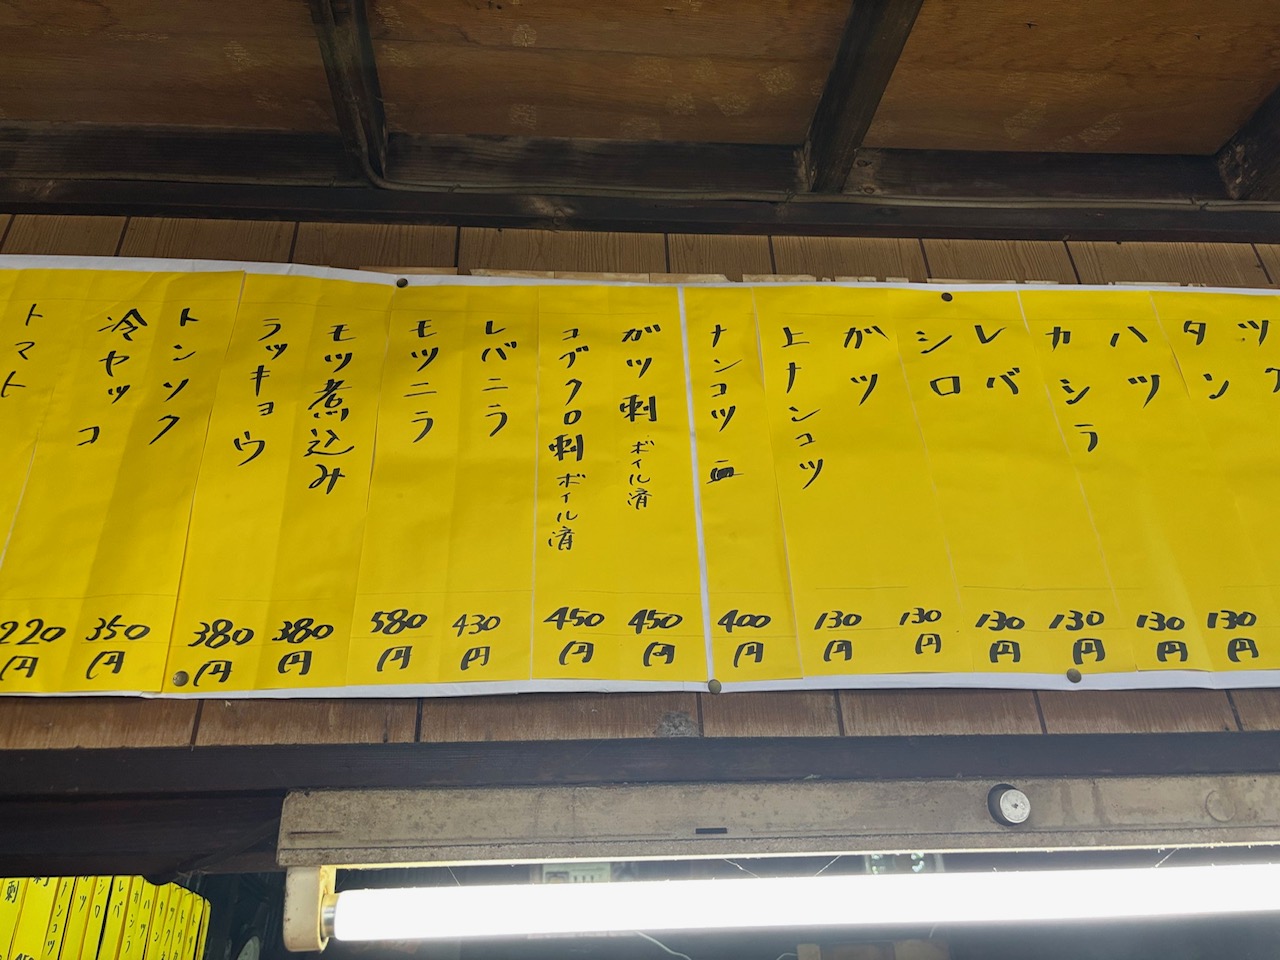 ツ
タン
ハツ
130円
カシラ
130円
レバ
130円
シロ
130円
ガツ
130円
上ナンコツ
130円
ナンコツ 皿
400円
ガツ刺 ボイル済
450円
コブクロ刺 ボイル済
450円
レバニラ
430円
モツニラ
580円
モツ煮込み
380円
ラッキョウ
380円
トンソク
350円
冷ヤッコ
220円
トマト